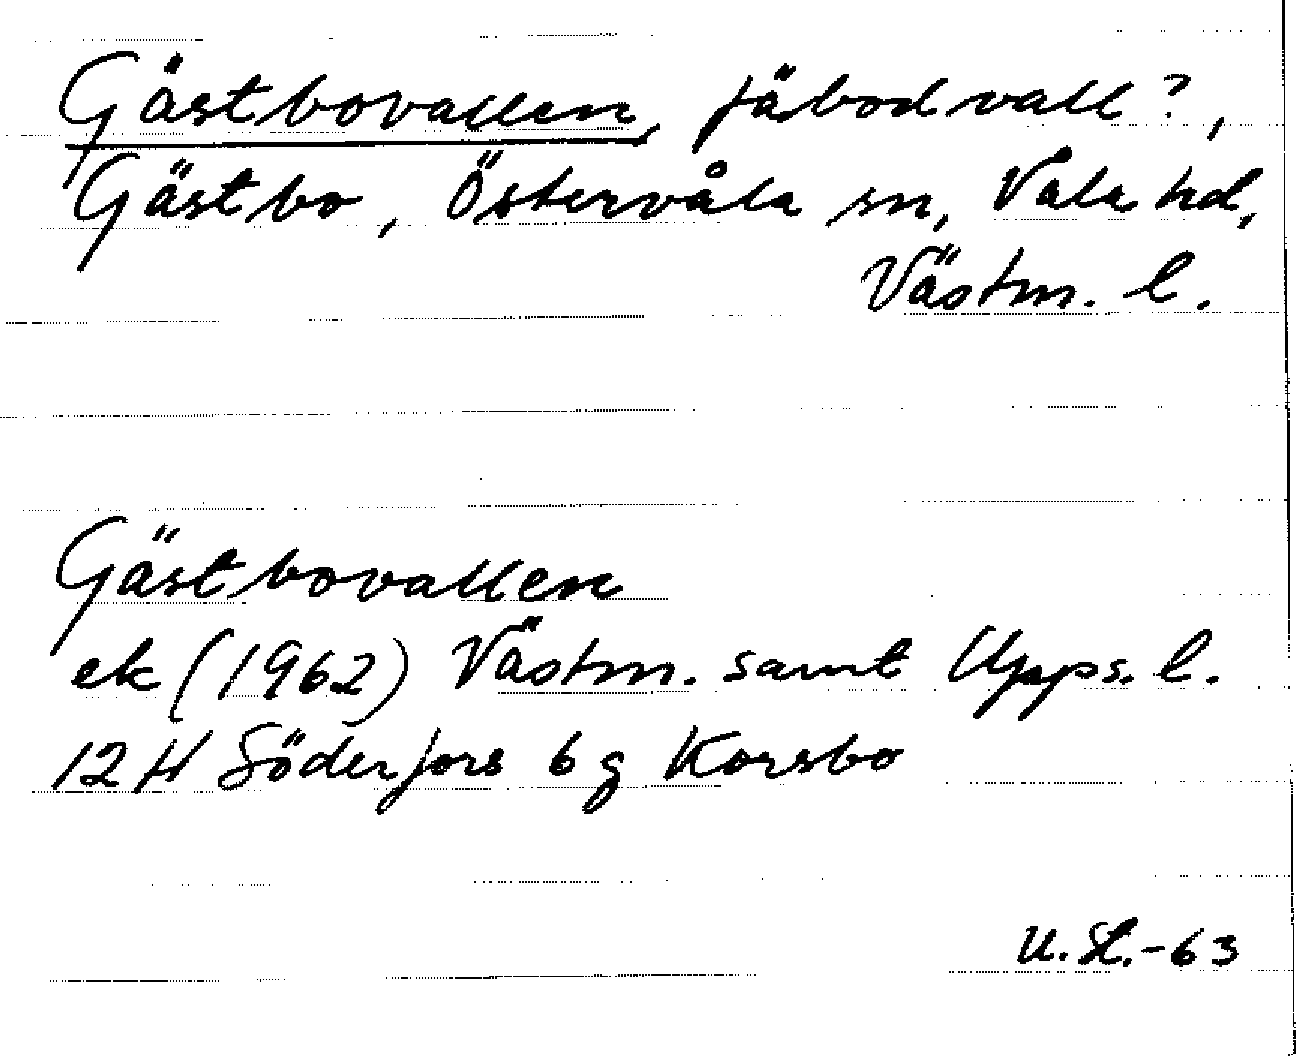 Gästbovallen, fäbodvall?,
Gästbo, Östervåla sn, Våla hd,
Västm. l.
Gästbovallen
ek (1962) Västm. samt Upps. l.
12 H Söderfors 6 g Korsbo
U. St.-63